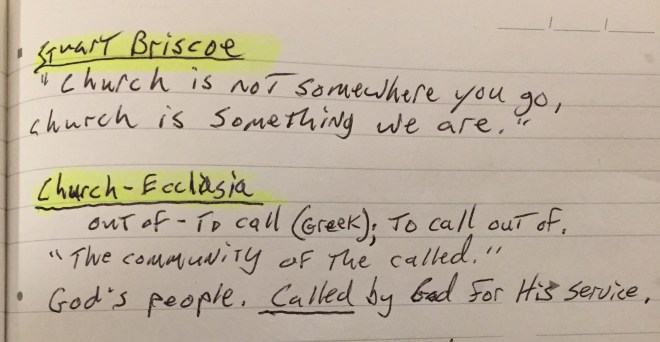 Stuart Briscoe
"Church is not somewhere you go,
church is something we are."
Church-Ecclasia
out of - To call (Greek); To call out of.
"The community of the called."
• God's people. Called by God for His service.